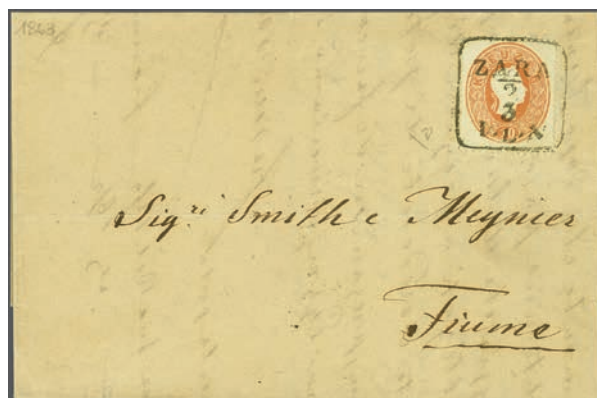 1863
ZARA
2
3
V.D.A
Sig.ri Smith e Meynier
Fiume